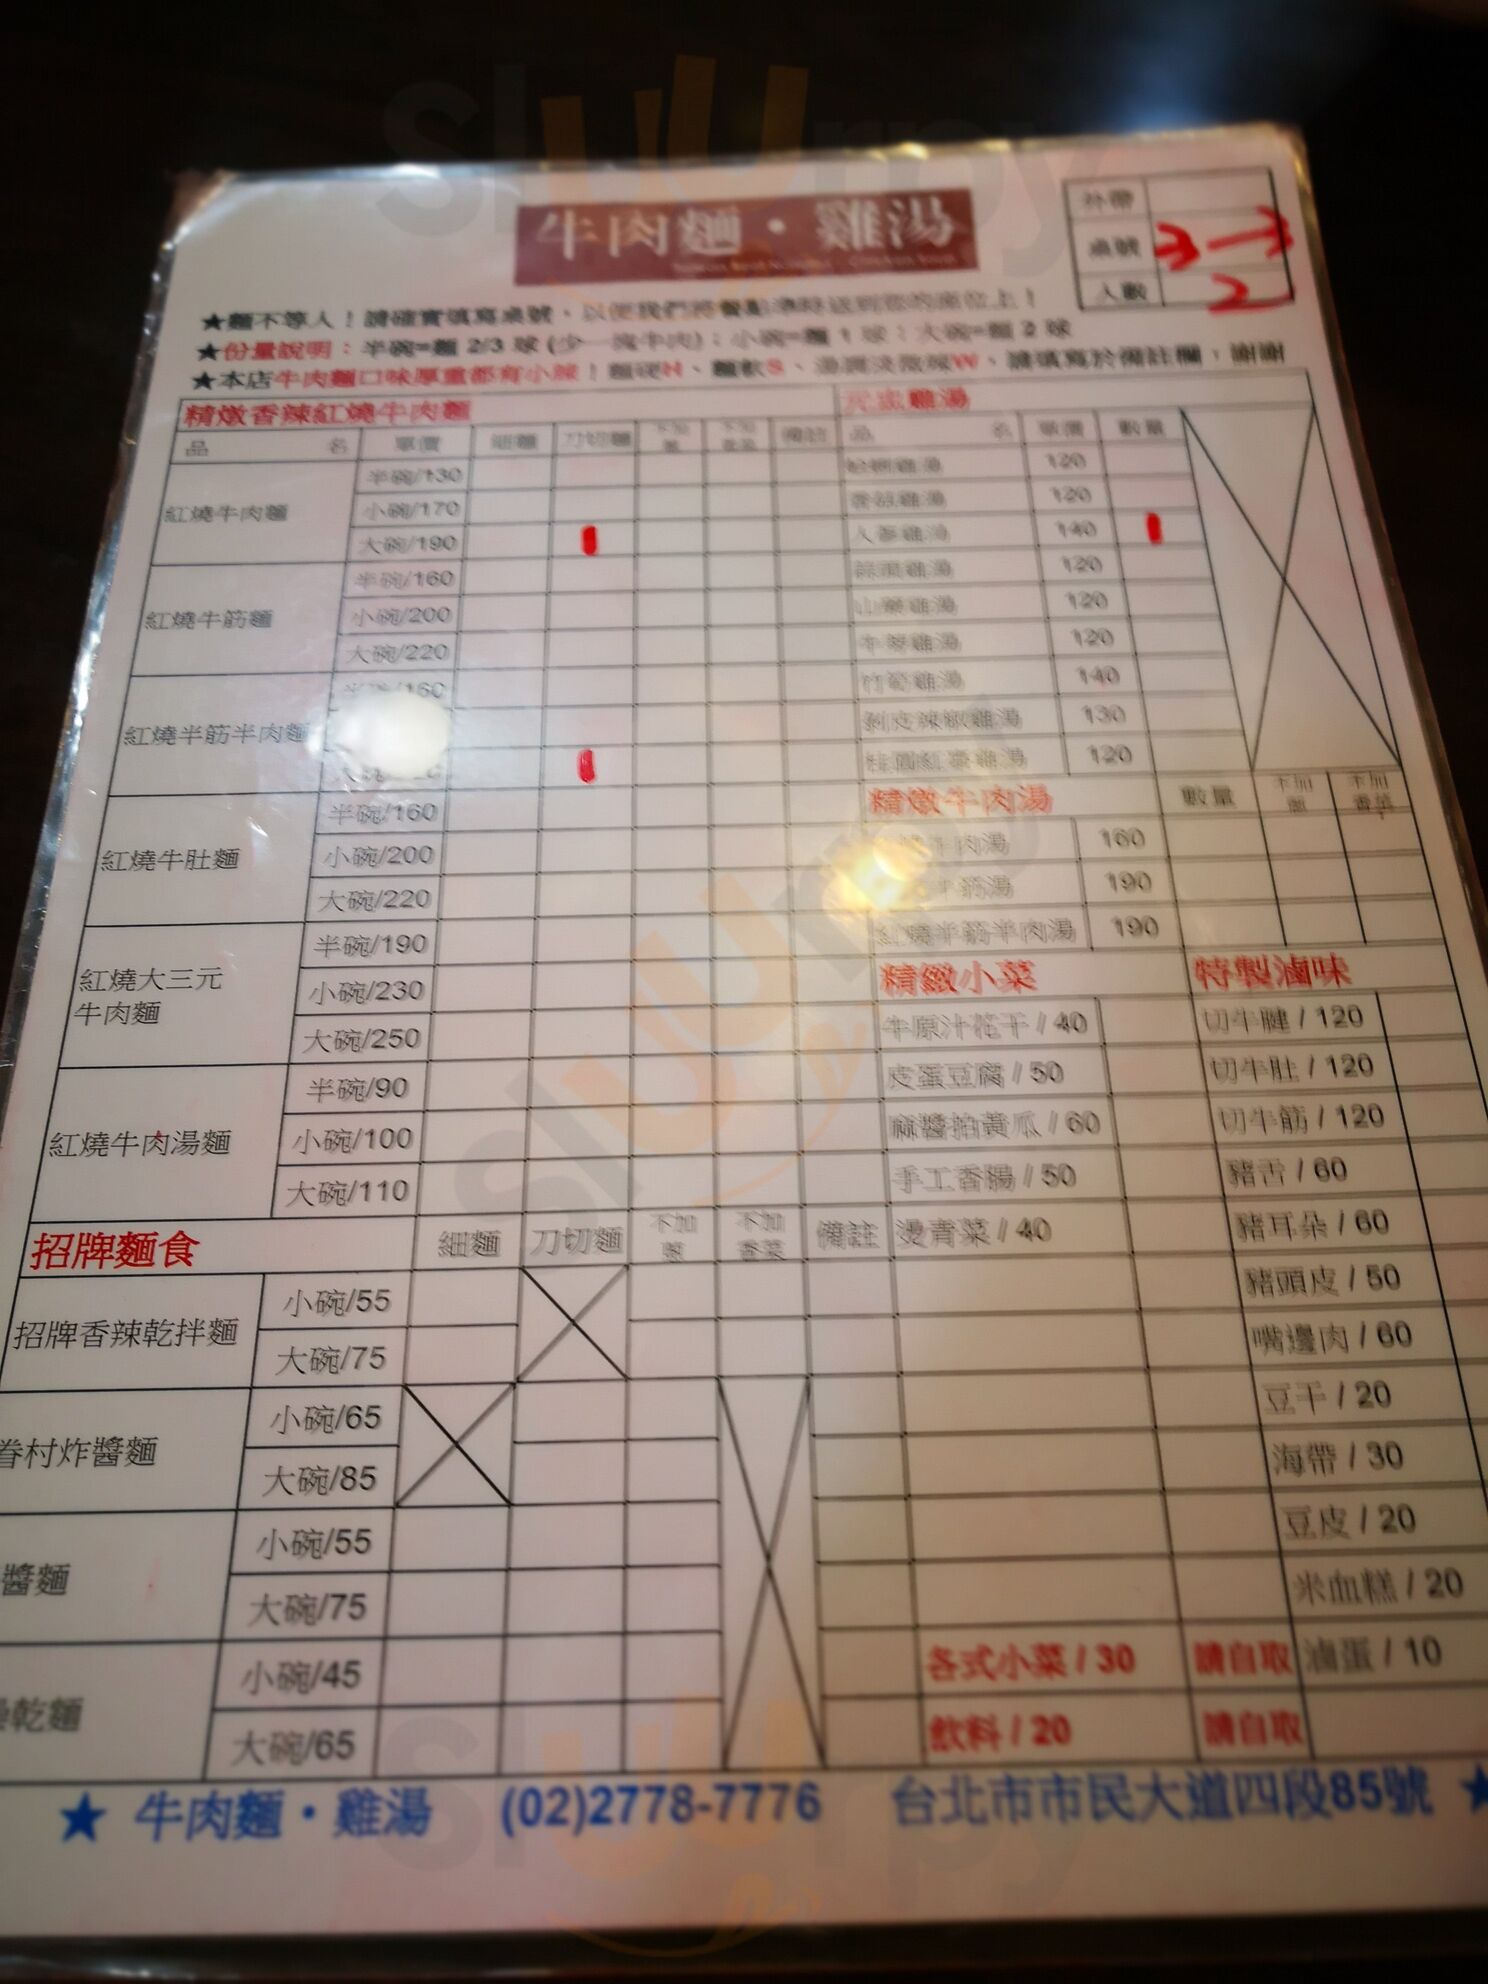 牛肉麵・雞湯
外帶
桌號 3-3
人數 2
★麵不等人！請確實填寫桌號、以便我們將餐點準時送到您的座位上！
★份量說明：半碗=麵 2/3 球 (少一塊牛肉)；小碗=麵 1 球；大碗=麵 2 球
★本店牛肉麵口味厚重都有小辣！麵硬H、麵軟S、湯調淡微辣W、請填寫於備註欄，謝謝
精燉香辣紅燒牛肉麵
品 名 單價 細麵 刀切麵 不加蔥 不加香菜 備註
紅燒牛肉麵
半碗/130
小碗/170
大碗/190
紅燒牛筋麵
半碗/160
小碗/200
大碗/220
紅燒半筋半肉麵
半碗/160
紅燒牛肚麵
半碗/160
小碗/200
大碗/220
紅燒大三元
牛肉麵
半碗/190
小碗/230
大碗/250
紅燒牛肉湯麵
半碗/90
小碗/100
大碗/110
招牌麵食 細麵 刀切麵 不加蔥 不加香菜 備註
招牌香辣乾拌麵
小碗/55
大碗/75
眷村炸醬麵
小碗/65
大碗/85
醬麵
小碗/55
大碗/75
乾麵
小碗/45
大碗/65
元盅雞湯
品 名 單價 數量
蛤蜊雞湯 120
香菇雞湯 120
人蔘雞湯 140
蒜頭雞湯 120
山藥雞湯 120
牛蒡雞湯 120
竹筍雞湯 140
剝皮辣椒雞湯 130
桂圓紅棗雞湯 120
精燉牛肉湯 數量 不加蔥 不加香菜
牛肉湯 160
牛筋湯 190
紅燒半筋半肉湯 190
精緻小菜
牛原汁花干 / 40
皮蛋豆腐 / 50
麻醬拍黃瓜 / 60
手工香腸 / 50
燙青菜 / 40
各式小菜 / 30 請自取
飲料 / 20 請自取
特製滷味
切牛腱 / 120
切牛肚 / 120
切牛筋 / 120
豬舌 / 60
豬耳朵 / 60
豬頭皮 / 50
嘴邊肉 / 60
豆干 / 20
海帶 / 30
豆皮 / 20
米血糕 / 20
滷蛋 / 10
★ 牛肉麵・雞湯 (02)2778-7776 台北市市民大道四段85號 ★
slurrpy